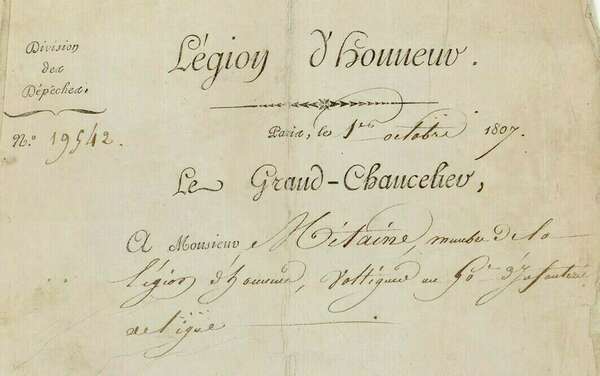 Division
des
Dépêches.
N.º 19542.
Légion d'honneur.
Paris, le 1er octobre 1807.
Le Grand-Chancelier,
A Monsieur Métaine, membre de la
légion d'honneur, Voltigeur au 50e d'Infanterie
de ligne